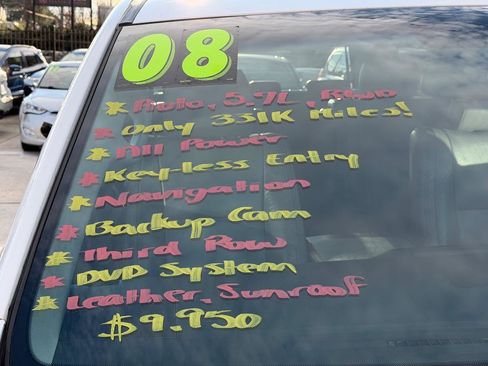 08
* Auto, 5.7L, RWD
* Only 331K Miles!
* All Power
* Key-less Entry
* Navigation
* Backup Cam
* Third Row
* DVD System
* Leather, Sunroof
$9,950